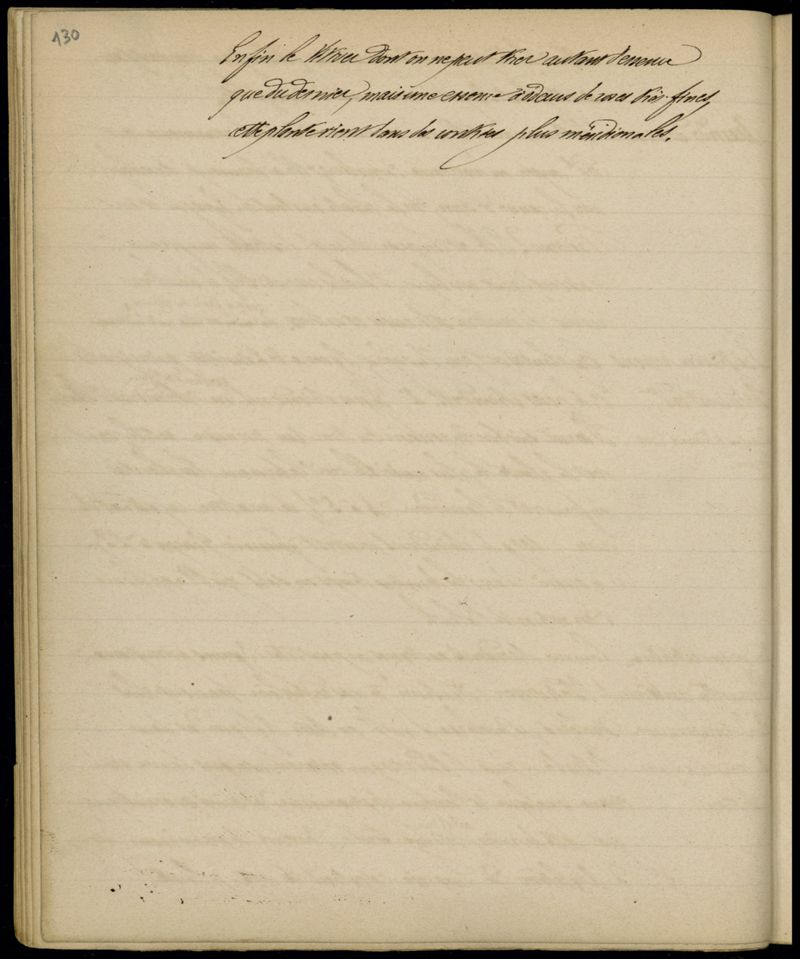 130
Enfin le dont on ne peut tirer autant d'essence
que du dernier, mais une essence à odeurs de roses très fines,
cette plante vient dans des contrées plus méridionales.